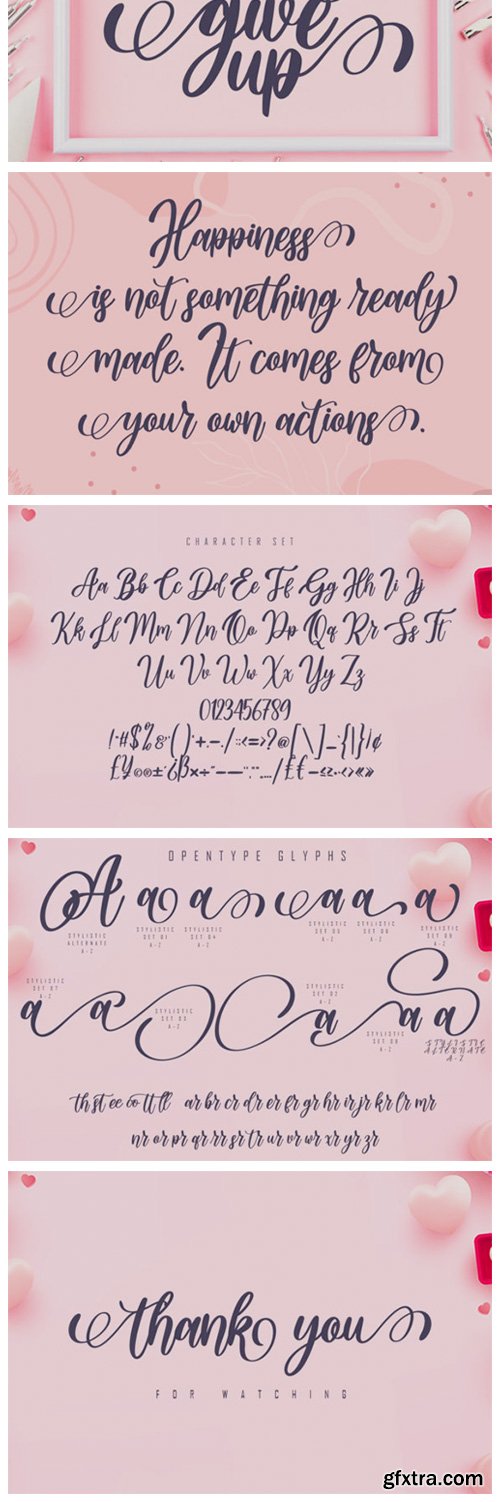 give
up
Happiness
is not something ready
made. It comes from
your own actions.
CHARACTER SET
Aa Bb Cc Dd Ee Ff Gg Hh Ii Jj
Kk Ll Mm Nn Oo Pp Qq Rr Ss Tt
Uu Vv Ww Xx Yy Zz
0123456789
OPENTYPE GLYPHS
A a a a a a a
STYLISTIC ALTERNATE A-Z
STYLISTIC SET 01 A-Z
STYLISTIC SET 04 A-Z
STYLISTIC SET 05 A-Z
STYLISTIC SET 06 A-Z
STYLISTIC SET 09 A-Z
STYLISTIC SET 07 A-Z
a a a a a
STYLISTIC SET 03 A-Z
STYLISTIC SET 02 A-Z
STYLISTIC SET 08 A-Z
STYLISTIC ALTERNATE A-Z
th st ee oo tt ll ar br cr dr er fr gr hr ir jr kr lr mr
nr or pr qr rr sr tr ur vr wr xr yr zr
thank you
FOR WATCHING
gfxtra.com